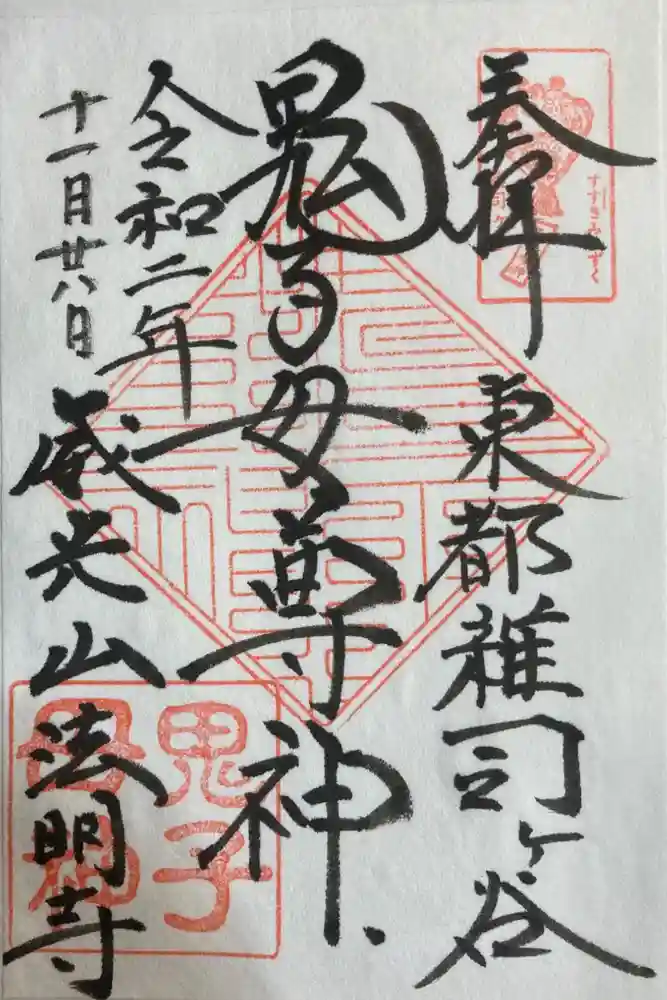 奉拝
東都雑司ヶ谷
鬼子母尊神
令和二年
十一月廿八日
威光山法明寺
すすきみみずく
鬼子
母神